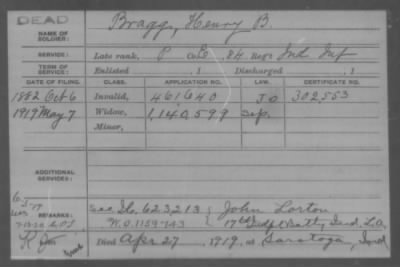 DEAD
NAME OF SOLDIER: Bragg, Henry B
SERVICE: Late rank, P Co. E, 84 Reg't Ind Inf
TERM OF SERVICE: Enlisted , 1 Discharged , 1
DATE OF FILING. CLASS. APPLICATION NO. LAW. CERTIFICATE NO.
1882 Oct 6 Invalid, 461640 302,553
1919 May 7 Widow, 1,140,599 Sep.
Minor,
ADDITIONAL SERVICES:
REMARKS: See Wo. 623213 John Lorton
W.O. 1159743 17th Indpt Batty Ind. L.A.
Died Apr 27, 1919, at Saratoga, Ind